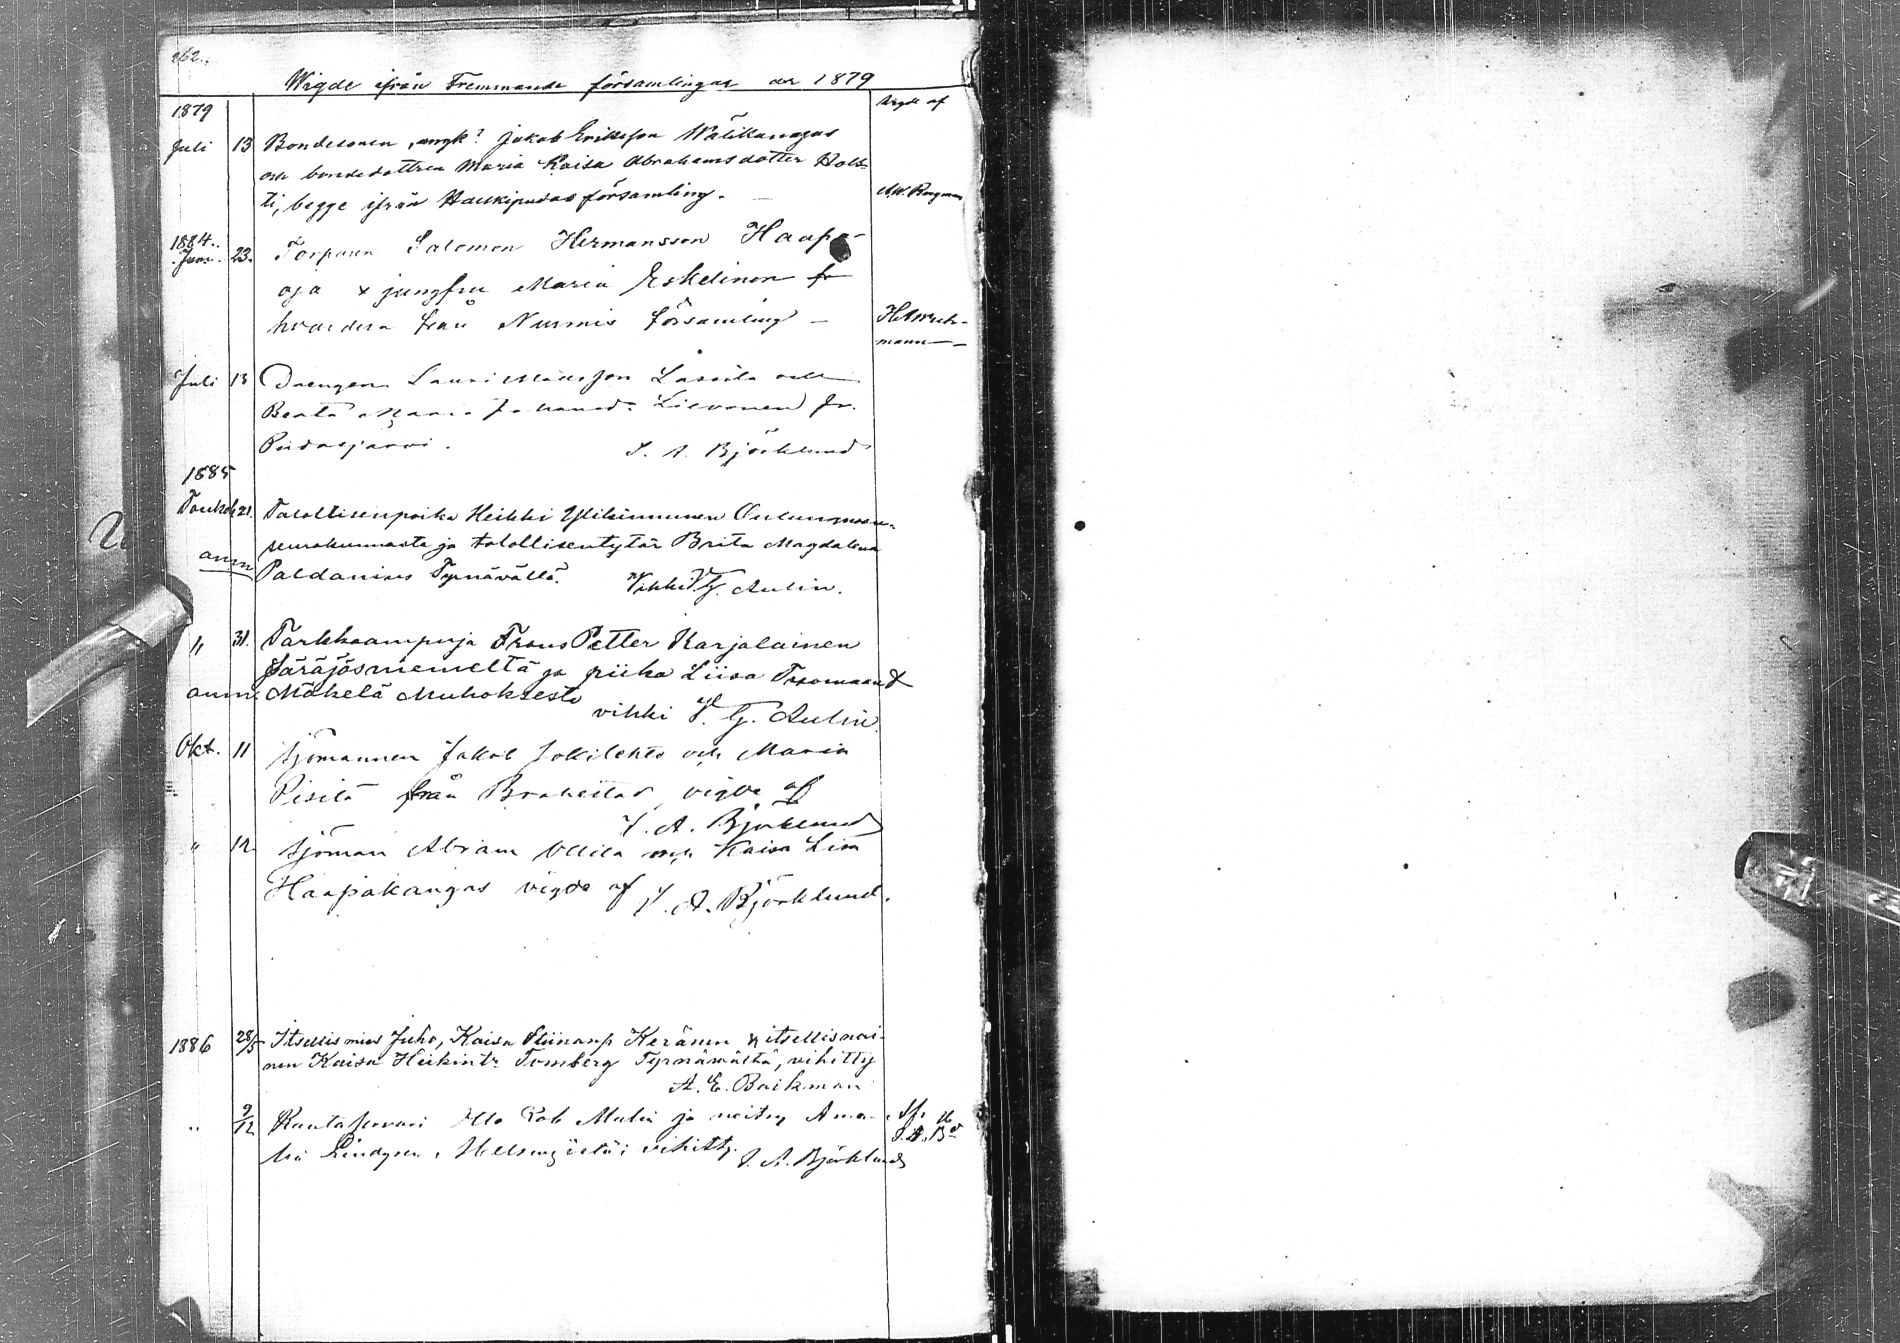 262.
Wigde ifrån Fremmande församlingar år 1879
1879 Vigde af
Juli 13 Bondesonen, Jakob Eriksson Wälikangas
och bondedottren Maria Kaisa Abrahamsdotter Holt-
ti, begge ifrån Haukipudas församling. A.W. Bergman
1884.
Juni 23. Torparen Salomon Hermansson Haapa-
oja & jungfru Maria Eskelinen fr
hvardera från Nurmis församling — H. A. Wich-
mann
Juli 13 Drengen Lauri Mattsson Lassila och
Beata Maria Johansd. Lievonen fr.
Pudasjärvi. J. A. Björklund
1885
Toukok 21. Talollisenpoika Heikki Ylikinnunen Oulunmaa-
seurakunnasta ja talollisentytär Brita Magdalena
ann Paldanius Tyrnävältä. Vihki V. G. Aulin.
" 31. Tarkkaampuja Frans Petter Karjalainen
Säräjäsniemeltä ja piika Liisa
ann. Mäkelä Muhokselta
vihki V. G. Aulin
Okt. 11 Sjömannen Jakob Jokilehto och Maria
Pisilä från Brahestad, vigde af
J. A. Björklund
" 12. Sjöman Abram Ullila och Kaisa Lisa
Haapakangas vigde af J. A. Björklund.
1886 28/5 Itsellismies Juho, Kaisa Keränen & itsellisnai-
nen Kaisa Heikintr Tomberg Tyrnäwältä, vihitty
A. E. Backman
" 9/12 Otto ja neitsy Ama-
lia Lindgren, Helsingistä; vihitty. J. A. Björklund